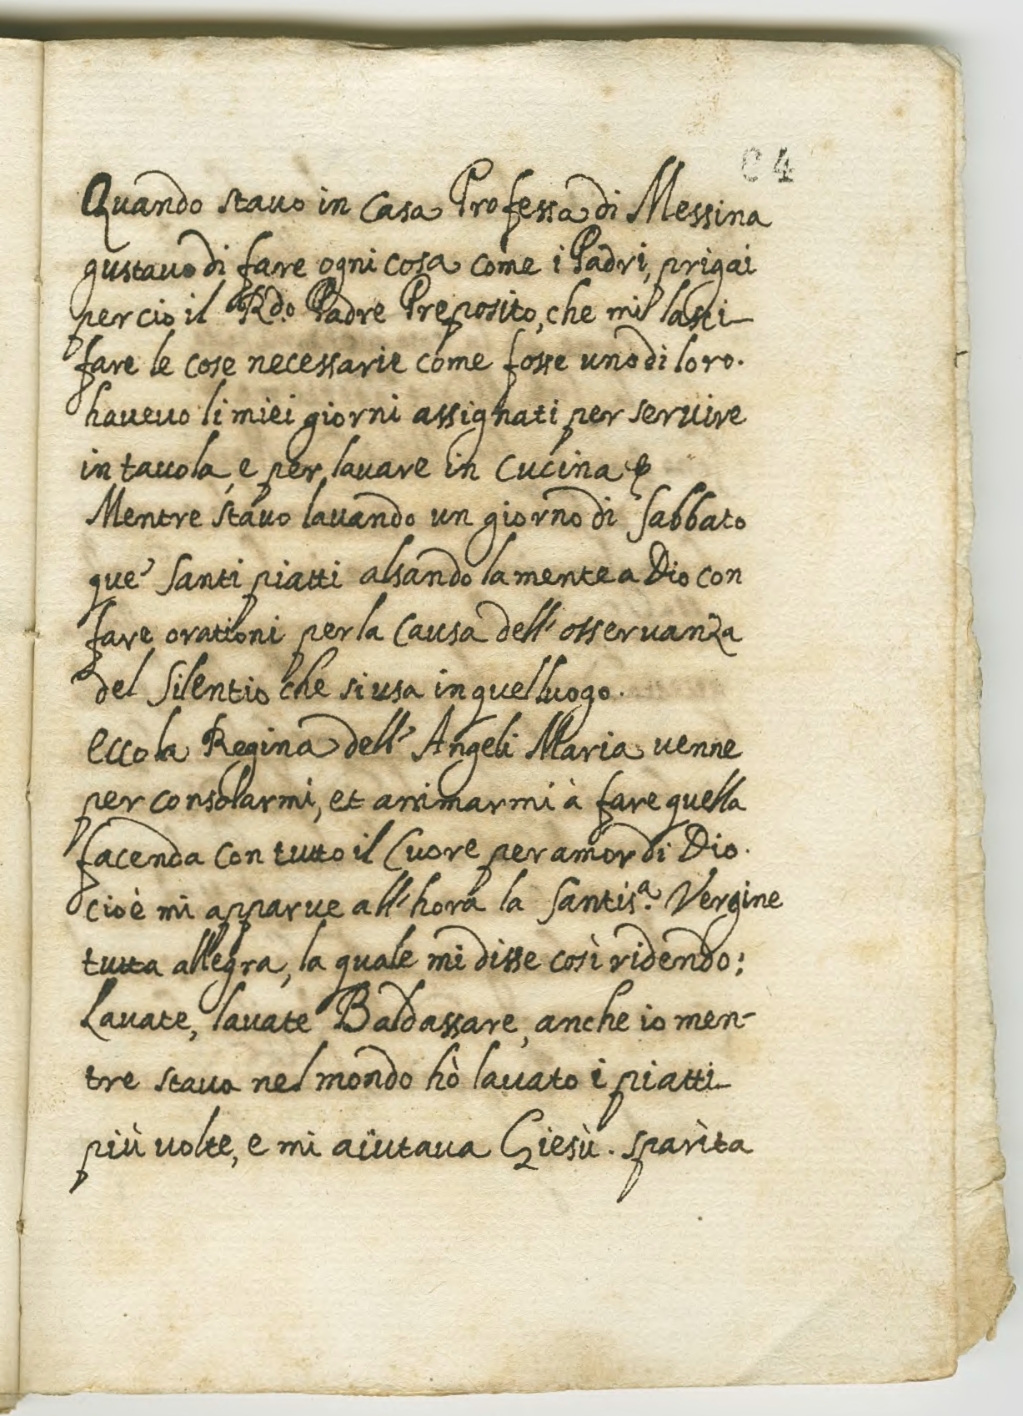 64
Quando stavo in Casa Professa di Messina
gustavo di fare ogni cosa come i Padri, prigai
percio il Rdo. Padre Preposito, che mi lasci
fare le cose necessarie come fosse uno di loro.
havevo li miei giorni assignati per servire
in tavola, e per lavare in Cucina &
Mentre stavo lavando un giorno di Sabbato
que' Santi piatti alsando la mente a Dio con
fare orationi per la Causa dell' osservanza
del Silentio che si usa in quel luogo.
Ecco la Regina dell' Angeli Maria venne
per consolarmi, et animarmi à fare quella
facenda con tutto il Cuore per amor di Dio.
cioè mi apparve all' hora la Santis.a Vergine
tutta allegra, la quale mi disse così ridendo:
Lavate, lavate Baldassare, anche io men-
tre stava nel mondo hò lavato i piatti
più volte, e mi aiutava Giesù. sparita